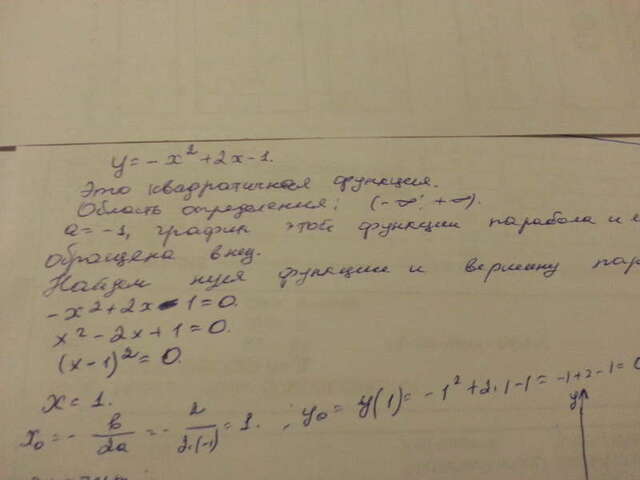 y = - x² + 2x - 1.
Это квадратичная функция.
Область определения: (-∞; +∞).
a = -1, график этой функции парабола и
обращена вниз.
Найдём нуля функции и вершину пар
-x² + 2x - 1 = 0.
x² - 2x + 1 = 0.
(x-1)² = 0.
x = 1.
x₀ = - b/2a = - 2/2·(-1) = 1. ; y₀ = y(1) = -1² + 2·1 - 1 = -1 + 2 - 1 = 0
y